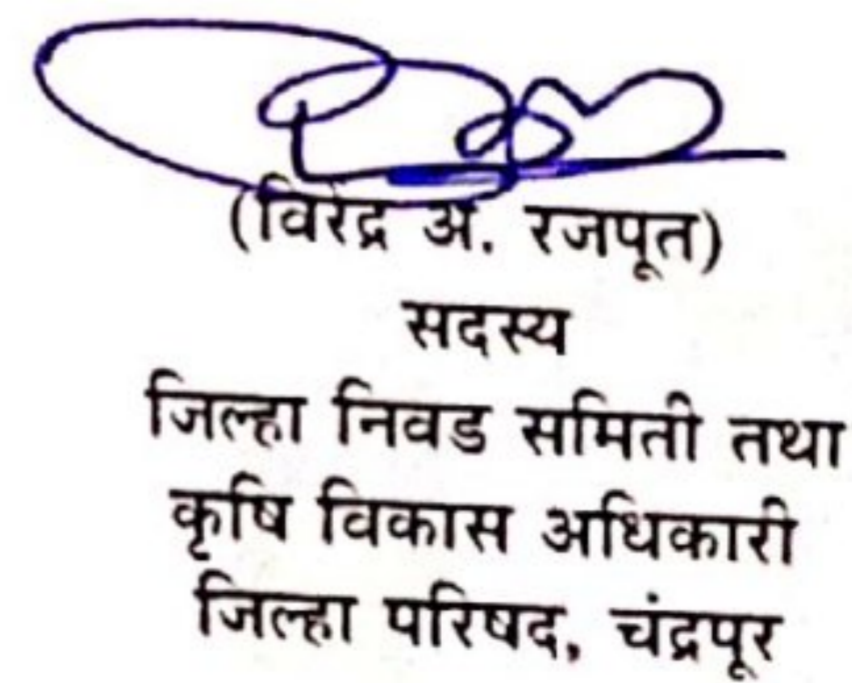 (विरेंद्र अ. रजपूत)
सदस्य
जिल्हा निवड समिती तथा
कृषि विकास अधिकारी
जिल्हा परिषद, चंद्रपूर